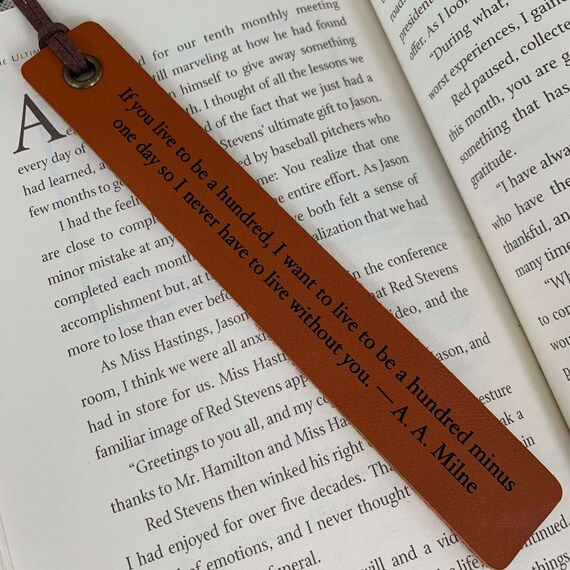 If you live to be a hundred, I want to live to be a hundred minus
one day so I never have to live without you. — A. A. Milne
THE ULTIM
for our tenth monthly meeting
still marveling at how he had found
himself to give away something
I thought of all the lessons we
every day of
of the fact we just had a
had learned, a
Stevens' ultimate gift to Jason.
few months to g
by baseball pitchers who
I had the feeli
one: You realize that one
are close to complet
entire effort. As Jason
minor mistake at any
both felt a sense of
completed each month
realization that we had
accomplishment but, at th
more to lose than ever befor
in the conference
As Miss Hastings, Jason
that Red Stevens
room, I think we were all anxi
video, and the
had in store for us. Miss Hasting
familiar image of Red Stevens app
Jason, and
"Greetings to you all, and my co
gesture
thanks to Mr. Hamilton and Miss Ha
Red Stevens then winked his right
speak a
I had enjoyed for over five decades. Tha
of emotions, and I never thought
funeral.
will and a video
road
president
offer. As I look
"During what,
worst experiences, I gained
Red paused, collecte
this month, you are g
something that has
gratitude.
"I have alway
who have the
thankful, and
many time
"Wh
can com